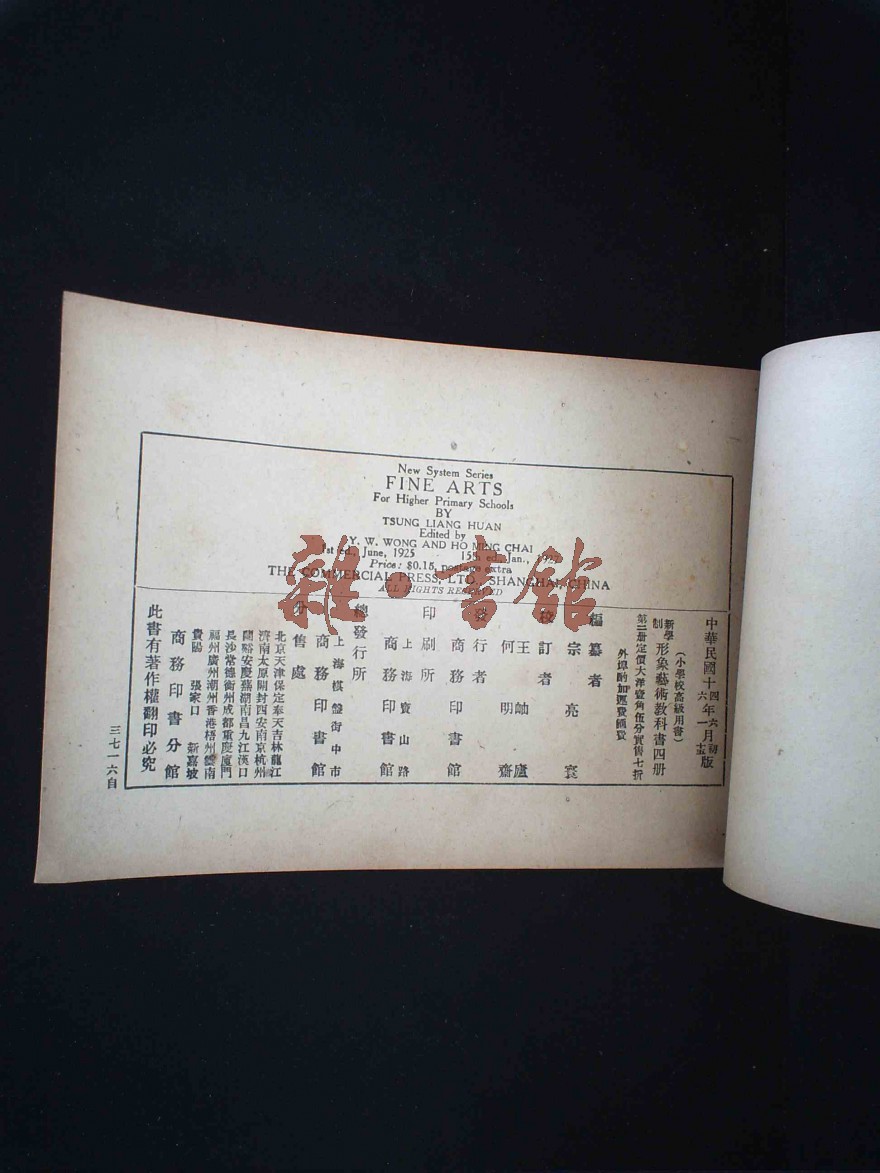 New System Series
FINE ARTS
For Higher Primary Schools
BY
TSUNG LIANG HUAN
Edited by
Y. W. WONG AND HO MING CHAI
1st ed., June, 1925 15th ed., Jan., 1927
Price: $0.15, postage extra
THE COMMERCIAL PRESS, LTD., SHANGHAI, CHINA
ALL RIGHTS RESERVED
雜·書館
中華民國十四年六月初版
六年一月十五版
(小學校高級用書)
新學制形象藝術教科書四册
第二册定價大洋壹角伍分實售七折
外埠酌加運費匯費
編纂者 宗亮寰
校訂者 王岫廬
何明齋
發行者 商務印書館
印刷所 上海寶山路
商務印書館
總發行所 上海棋盤街中市
商務印書館
分售處 北京天津保定奉天吉林龍江
濟南太原開封西安南京杭州
蘭谿安慶蕪湖南昌九江漢口
長沙常德衡州成都重慶廈門
福州廣州潮州香港梧州雲南
貴陽 張家口 新嘉坡
商務印書分館
此書有著作權翻印必究
三七一六自